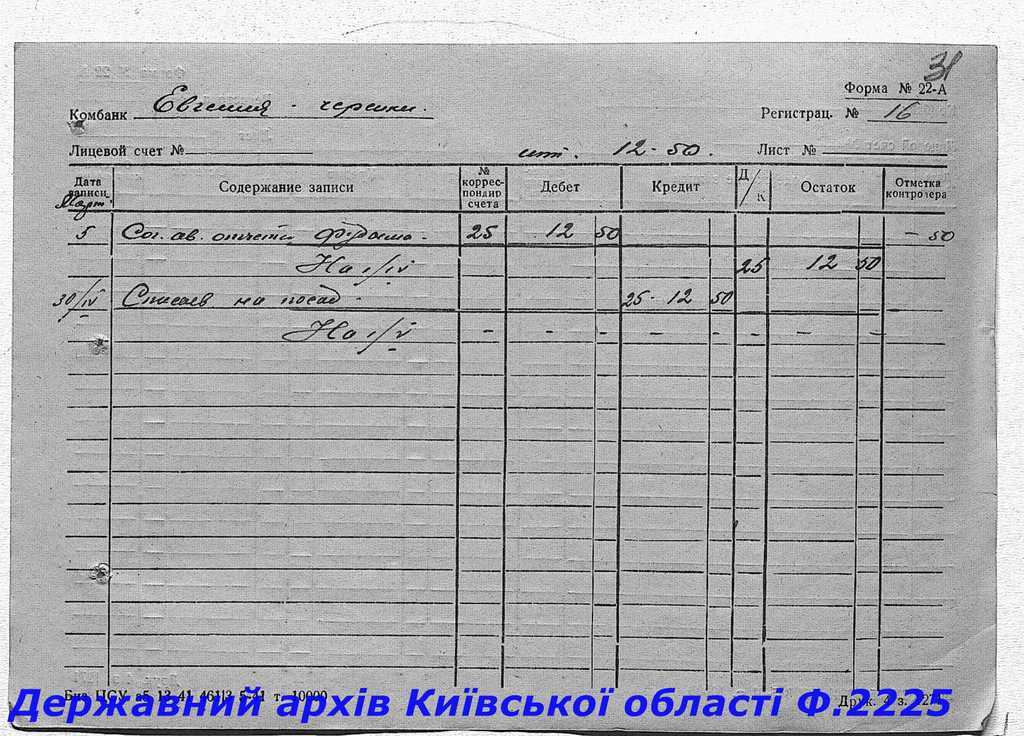 31
Форма № 22-А
Комбанк Евгения - черенки.
Регистрац. № 16
Лицевой счет №
шт. 12-50.
Лист №
Дата записи
Содержание записи
№ коррес- пондир счета
Дебет
Кредит
Д/К
Остаток
Отметка контролера
Март
5 Сог. ав. отчета 25 12 50 - 50
На 1/IV 25 12 50
30/IV Списаев на посад - 25 - 12 50
На 1/V - - - - - - - -
Биз ЦСУ 5-41 т. 10000
Друк. з.
Державний архів Київської області Ф.2225